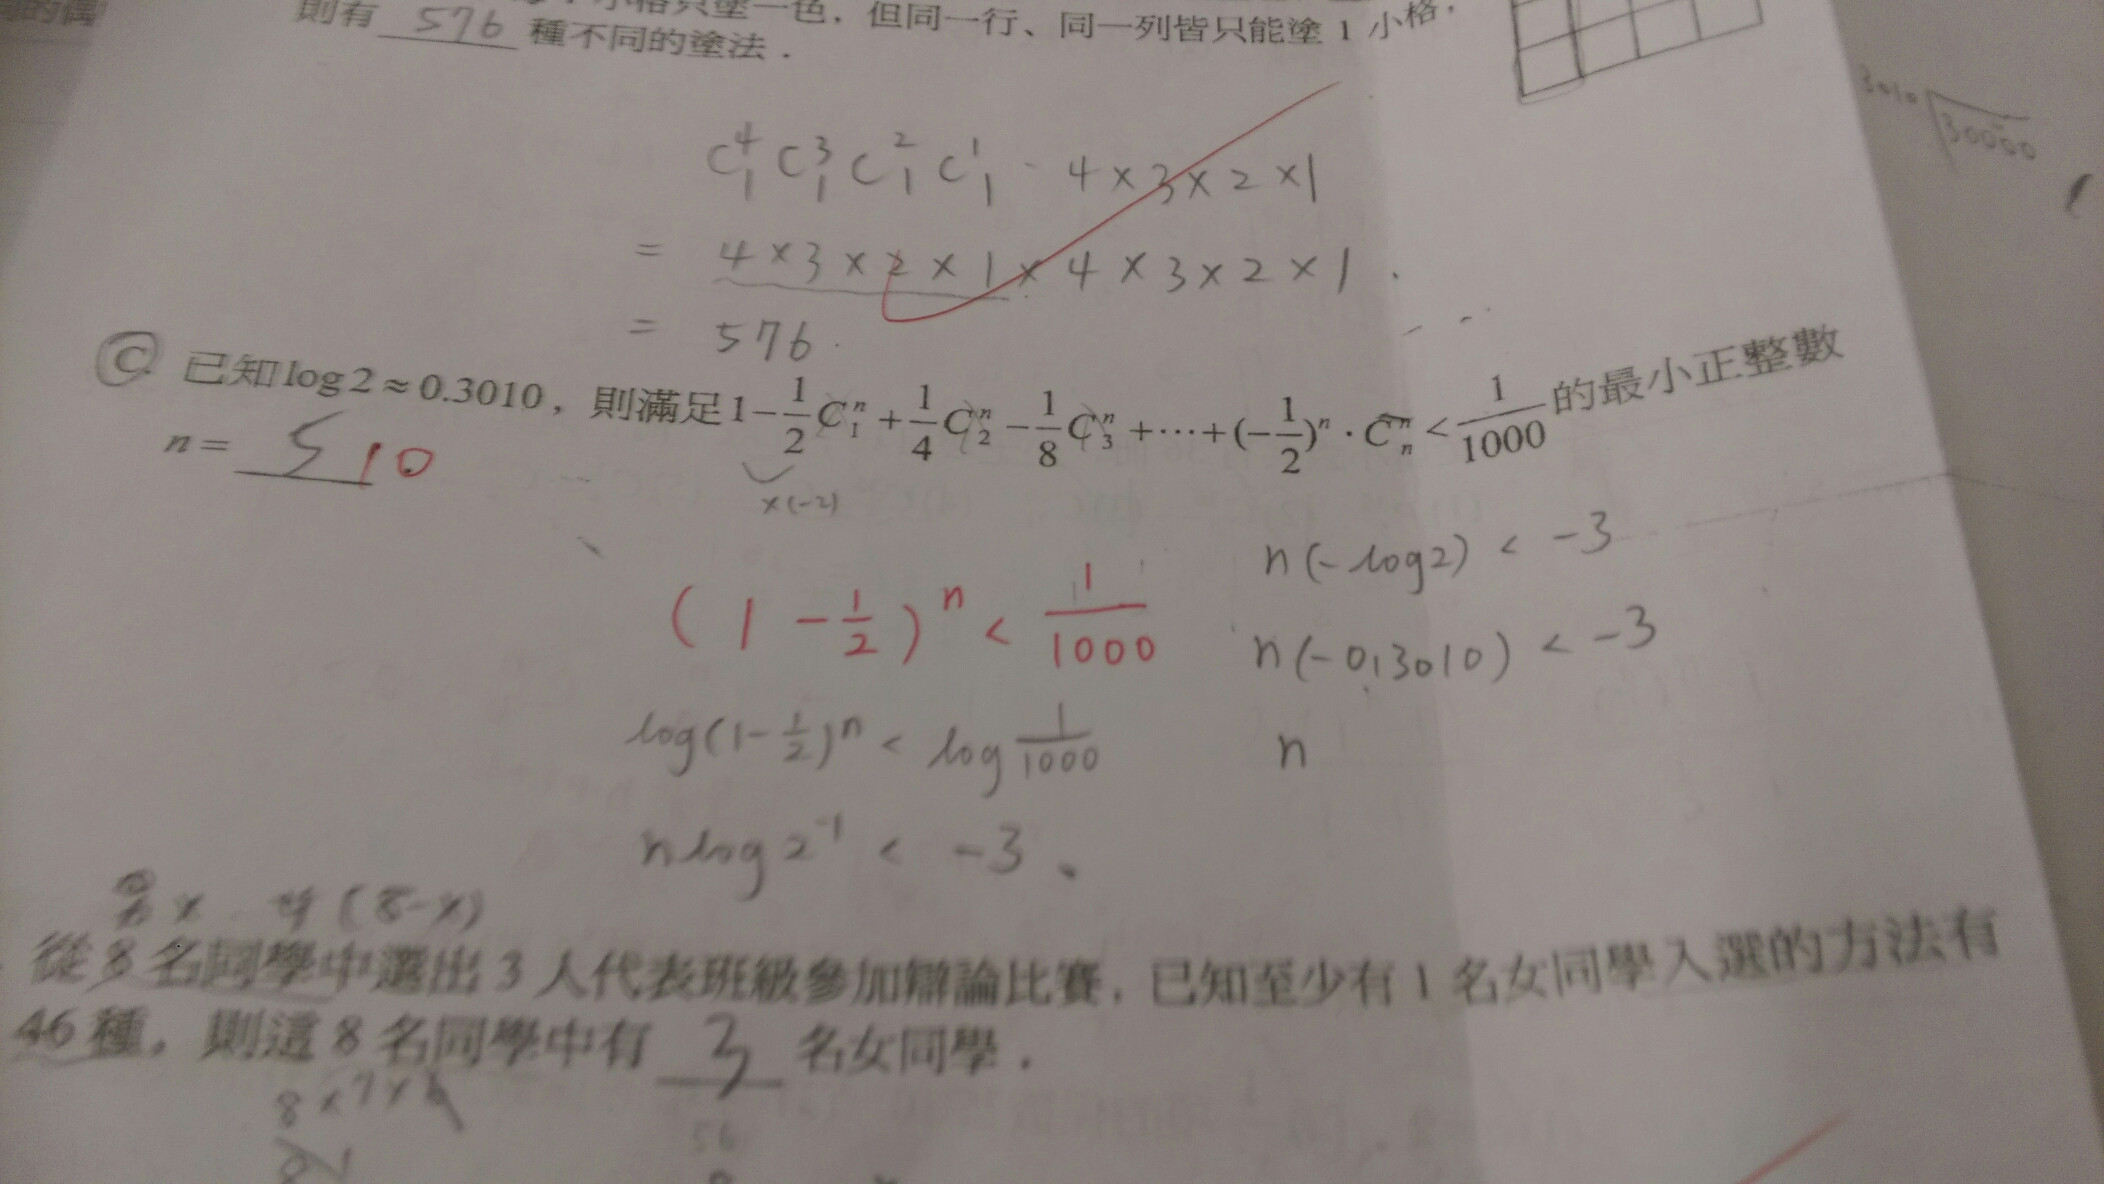 小格只塗一色，但同一行、同一列皆只能塗 1 小格，
則有 576 種不同的塗法．
3010 30000
C⁴₁ C³₁ C²₁ C¹₁ · 4×3×2×1
= 4×3×2×1×4×3×2×1.
= 576.
已知 log 2 ≈ 0.3010，則滿足 1 − 1/2 Cⁿ₁ + 1/4 Cⁿ₂ − 1/8 Cⁿ₃ + ⋯ + (−1/2)ⁿ · Cⁿₙ < 1/1000 的最小正整數
n = 5 10
×(−2)
(1 − 1/2)ⁿ < 1/1000
log(1 − 1/2)ⁿ < log 1/1000
n log 2⁻¹ < −3
n(−log2) < −3
n(−0.3010) < −3
n
x (8−x)
從 8 名同學中選出 3 人代表班級參加辯論比賽，已知至少有 1 名女同學入選的方法有
46 種，則這 8 名同學中有 3 名女同學．
8×7×6
56